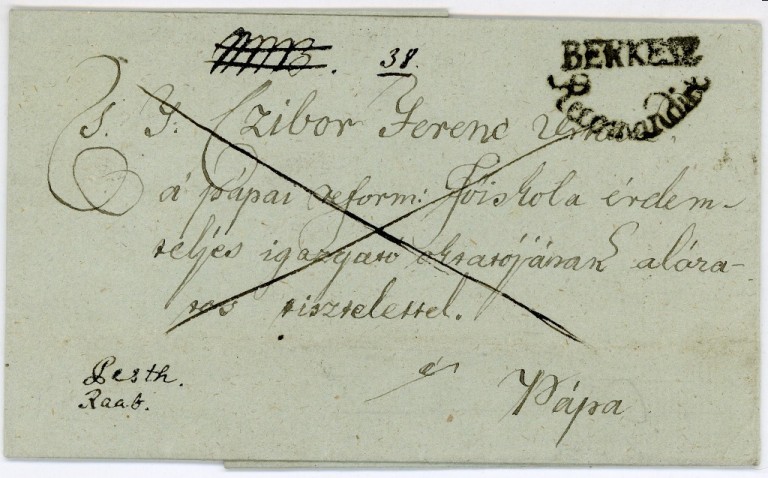 38.
BERKESZ
Recomandirt
T. I. Czibor Ferenc Úrnak
á pápai reform: Főiskola érdem-
teljes igazgató oktatójának aláza-
tos tisztelettel.
Pesth.
Raab.
Pápa